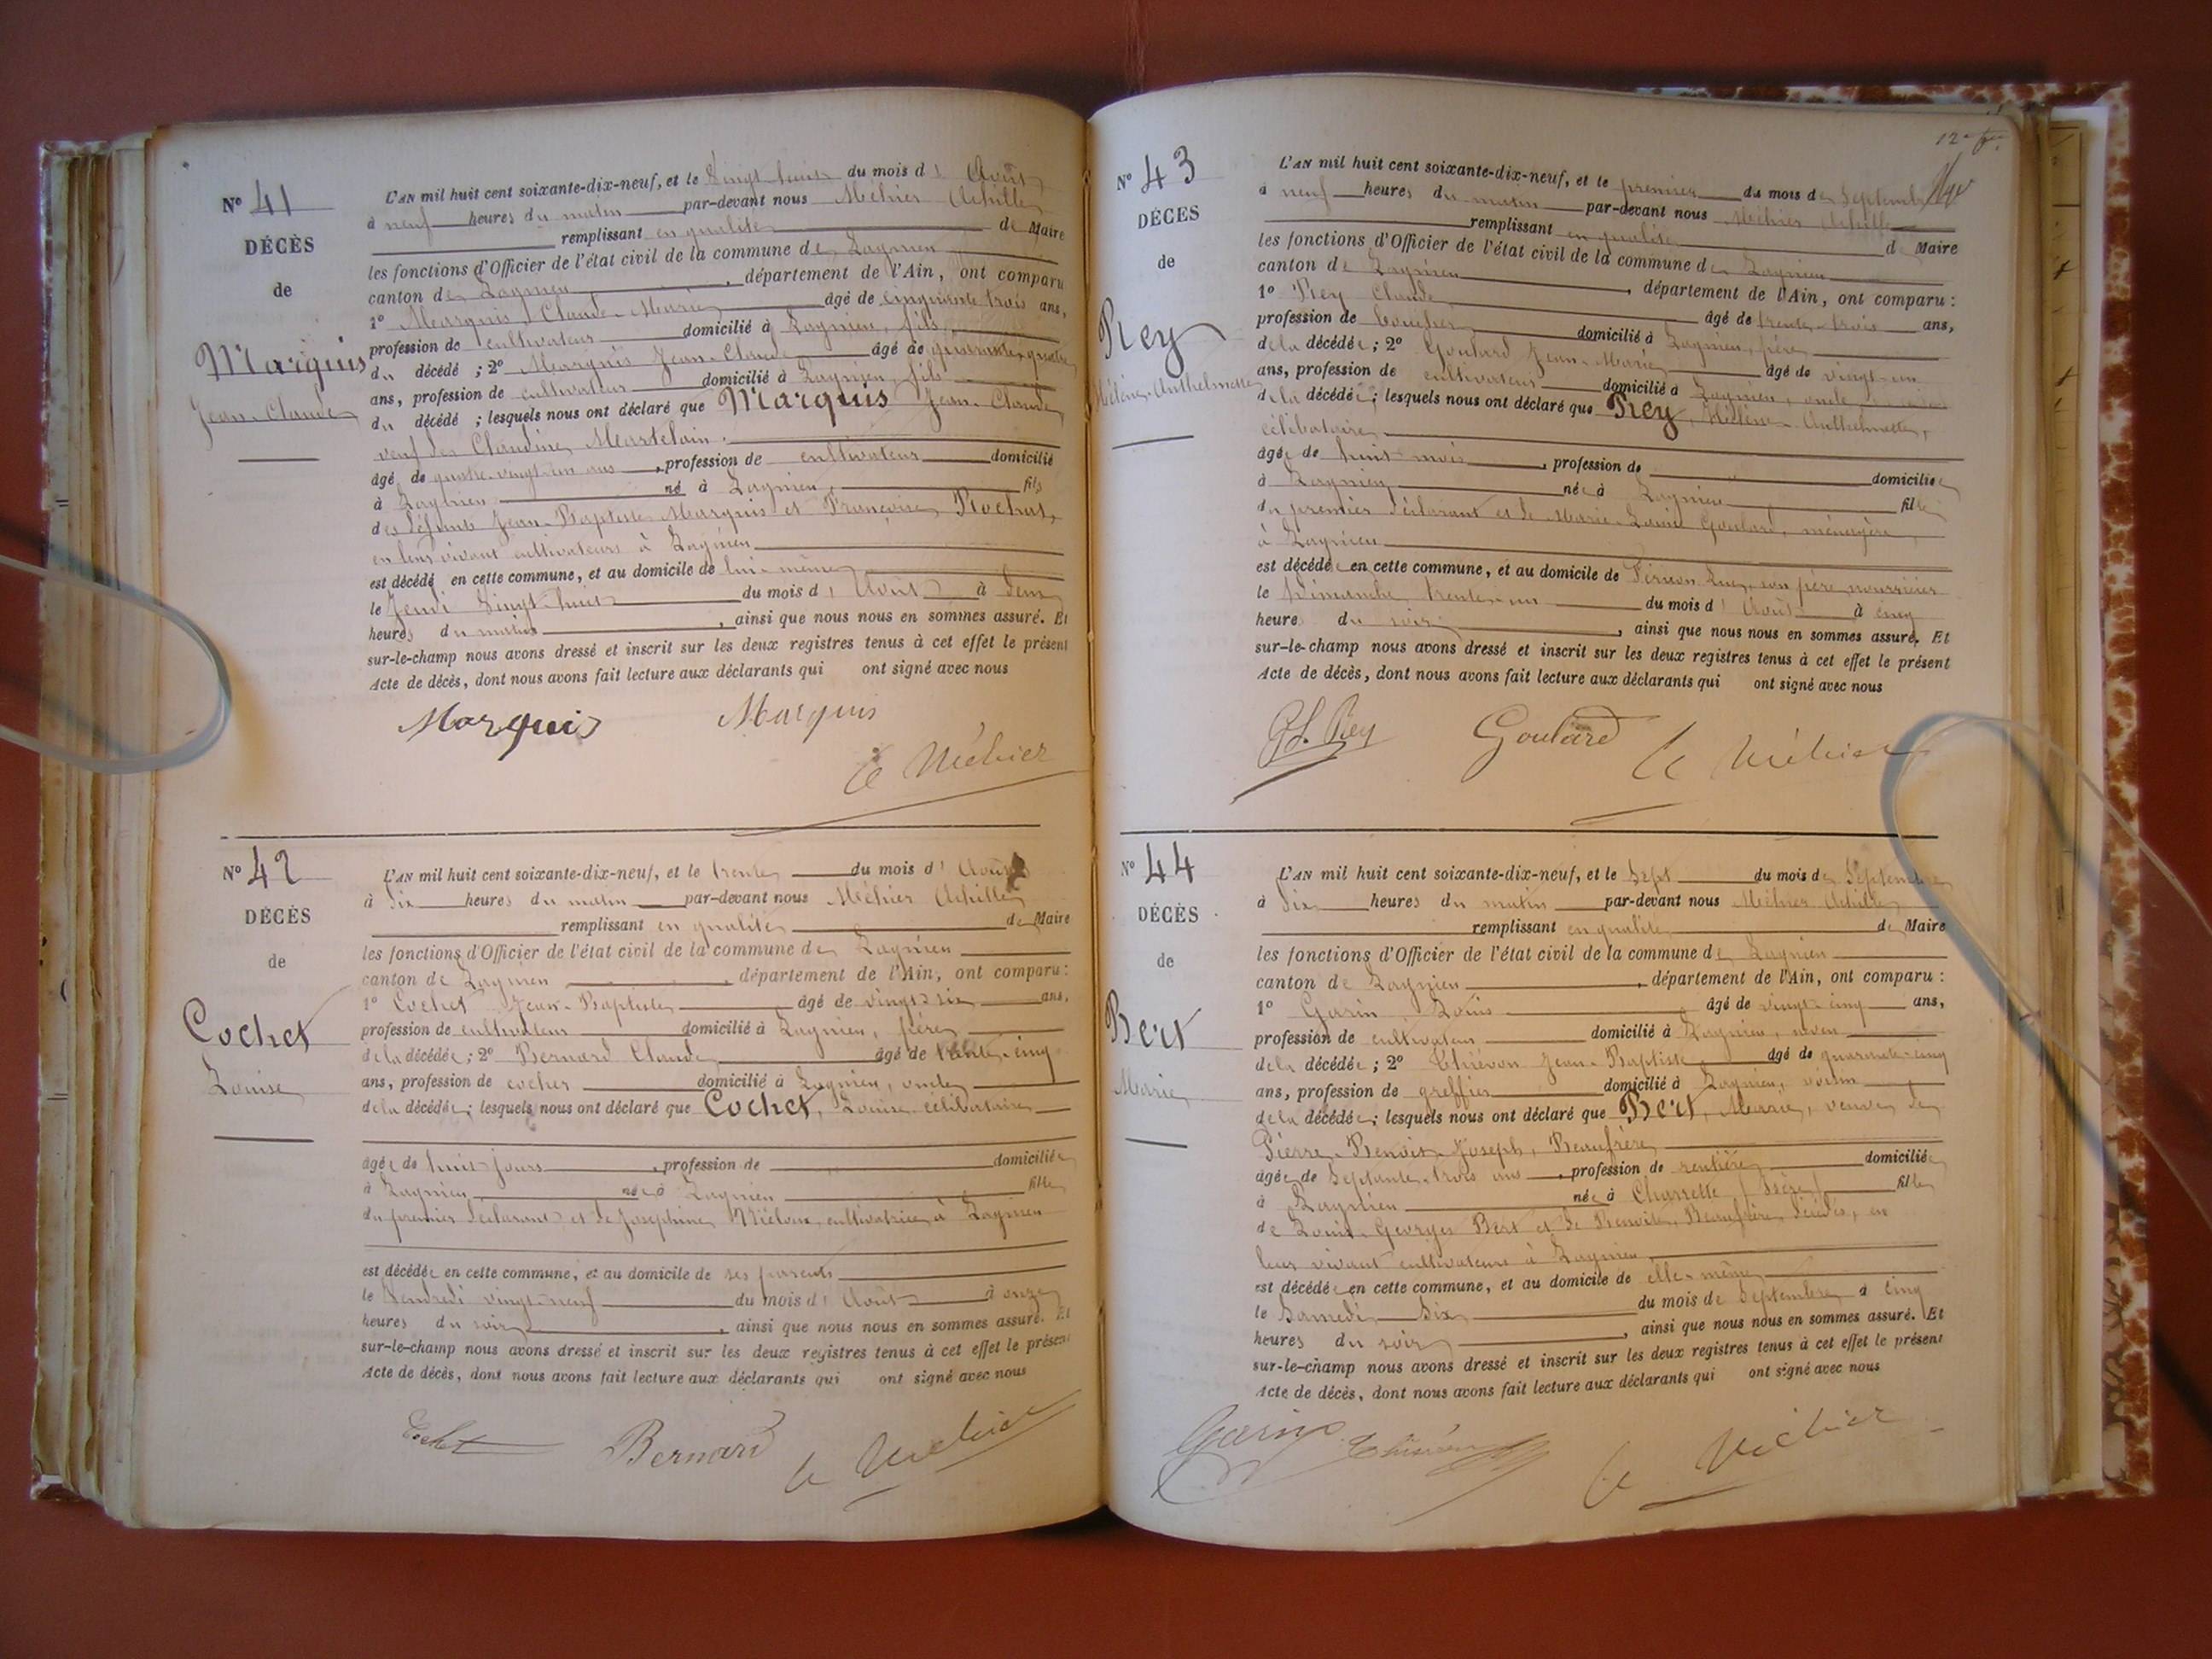 N° 41
DÉCÈS
de
Marquis
Jean-Claude
L'AN mil huit cent soixante-dix-neuf, et le Vingt huit du mois d' Août
à neuf heures du matin par-devant nous Méhier Achille
remplissant en qualité de Maire
les fonctions d'Officier de l'état civil de la commune de Lagnieu
canton de Lagnieu, département de l'Ain, ont comparu
1° Marquis Claude-Marie âgé de cinquante trois ans,
profession de cultivateur domicilié à Lagnieu, fils
du décédé ; 2° Marquis Jean-Claude âgé de quarante-quatre
ans, profession de cultivateur domicilié à Lagnieu, fils
du décédé ; lesquels nous ont déclaré que Marquis Jean-Claude
veuf de Claudine Martelain
âgé de quatre vingt un ans, profession de cultivateur domicilié
à Lagnieu né à Lagnieu, fils
des défunts Jean-Baptiste Marquis et Françoise Rochat,
en leur vivant cultivateurs à Lagnieu
est décédé en cette commune, et au domicile de lui-même
le Jeudi Vingt-huit du mois d' Août à deux
heures du matin, ainsi que nous nous en sommes assuré. Et
sur-le-champ nous avons dressé et inscrit sur les deux registres tenus à cet effet le présent
Acte de décès, dont nous avons fait lecture aux déclarants qui ont signé avec nous
Marquis Marquis
Méhier
N° 42
DÉCÈS
de
Cochet
Louise
L'AN mil huit cent soixante-dix-neuf, et le trente du mois d' Août
à Six heures du matin par-devant nous Méhier Achille
remplissant en qualité de Maire
les fonctions d'Officier de l'état civil de la commune de Lagnieu
canton de Lagnieu, département de l'Ain, ont comparu :
1° Cochet Jean-Baptiste âgé de vingt-six ans,
profession de cultivateur domicilié à Lagnieu, père
de la décédée ; 2° Bernard Claude âgé de trente-cinq
ans, profession de cocher domicilié à Lagnieu, oncle
de la décédée ; lesquels nous ont déclaré que Cochet, Louise célibataire
âgée de huit jours, profession de domiciliée
à Lagnieu née à Lagnieu fille
du premier déclarant et de Joséphine cultivatrice à Lagnieu
est décédée en cette commune, et au domicile de ses parents
le Vendredi vingt-neuf du mois d' Août à onze
heures du soir, ainsi que nous nous en sommes assuré. Et
sur-le-champ nous avons dressé et inscrit sur les deux registres tenus à cet effet le présent
Acte de décès, dont nous avons fait lecture aux déclarants qui ont signé avec nous
Cochet Bernard Méhier
N° 43
DÉCÈS
de
Rey
Hélène-Anthelmette
L'AN mil huit cent soixante-dix-neuf, et le premier du mois de Septembre
à neuf heures du matin par-devant nous Méhier Achille
remplissant en qualité de Maire
les fonctions d'Officier de l'état civil de la commune de Lagnieu
canton de Lagnieu, département de l'Ain, ont comparu :
1° Rey Claude âgé de trente-trois ans,
profession de boucher domicilié à Lagnieu, père
de la décédée ; 2° Goulard Jean-Marie âgé de vingt-un
ans, profession de cultivateur domicilié à Lagnieu, oncle
de la décédée ; lesquels nous ont déclaré que Rey, Hélène-Anthelmette,
célibataire
âgée de huit mois, profession de domiciliée
à Lagnieu née à Lagnieu fille
du premier déclarant et de Marie-Louise Goulard, ménagère
à Lagnieu
est décédée en cette commune, et au domicile de son père nourricier
le Dimanche trente-un du mois d' Août à cinq
heures du soir, ainsi que nous nous en sommes assuré. Et
sur-le-champ nous avons dressé et inscrit sur les deux registres tenus à cet effet le présent
Acte de décès, dont nous avons fait lecture aux déclarants qui ont signé avec nous
Rey Goulard Méhier
N° 44
DÉCÈS
de
Bert
Marie
L'AN mil huit cent soixante-dix-neuf, et le Sept du mois de Septembre
à Six heures du matin par-devant nous Méhier Achille
remplissant en qualité de Maire
les fonctions d'Officier de l'état civil de la commune de Lagnieu
canton de Lagnieu, département de l'Ain, ont comparu :
1° Garin Louis âgé de vingt-cinq ans,
profession de cultivateur domicilié à Lagnieu, neveu
de la décédée ; 2° Thiévon Jean-Baptiste âgé de quarante-cinq
ans, profession de greffier domicilié à Lagnieu, voisin
de la décédée ; lesquels nous ont déclaré que Bert, Marie, veuve de
Pierre-Benoit-Joseph, Beaufrère
âgée de Septante-trois ans, profession de rentière domiciliée
à Lagnieu née à Charrette (Isère) fille
de Louis-Georges Bert et de Benoite, Beaufrère, décédés, en
leur vivant cultivateurs à Lagnieu
est décédée en cette commune, et au domicile de elle-même
le Samedi Six du mois de Septembre à cinq
heures du soir, ainsi que nous nous en sommes assuré. Et
sur-le-champ nous avons dressé et inscrit sur les deux registres tenus à cet effet le présent
Acte de décès, dont nous avons fait lecture aux déclarants qui ont signé avec nous
Garin Thiévon Méhier